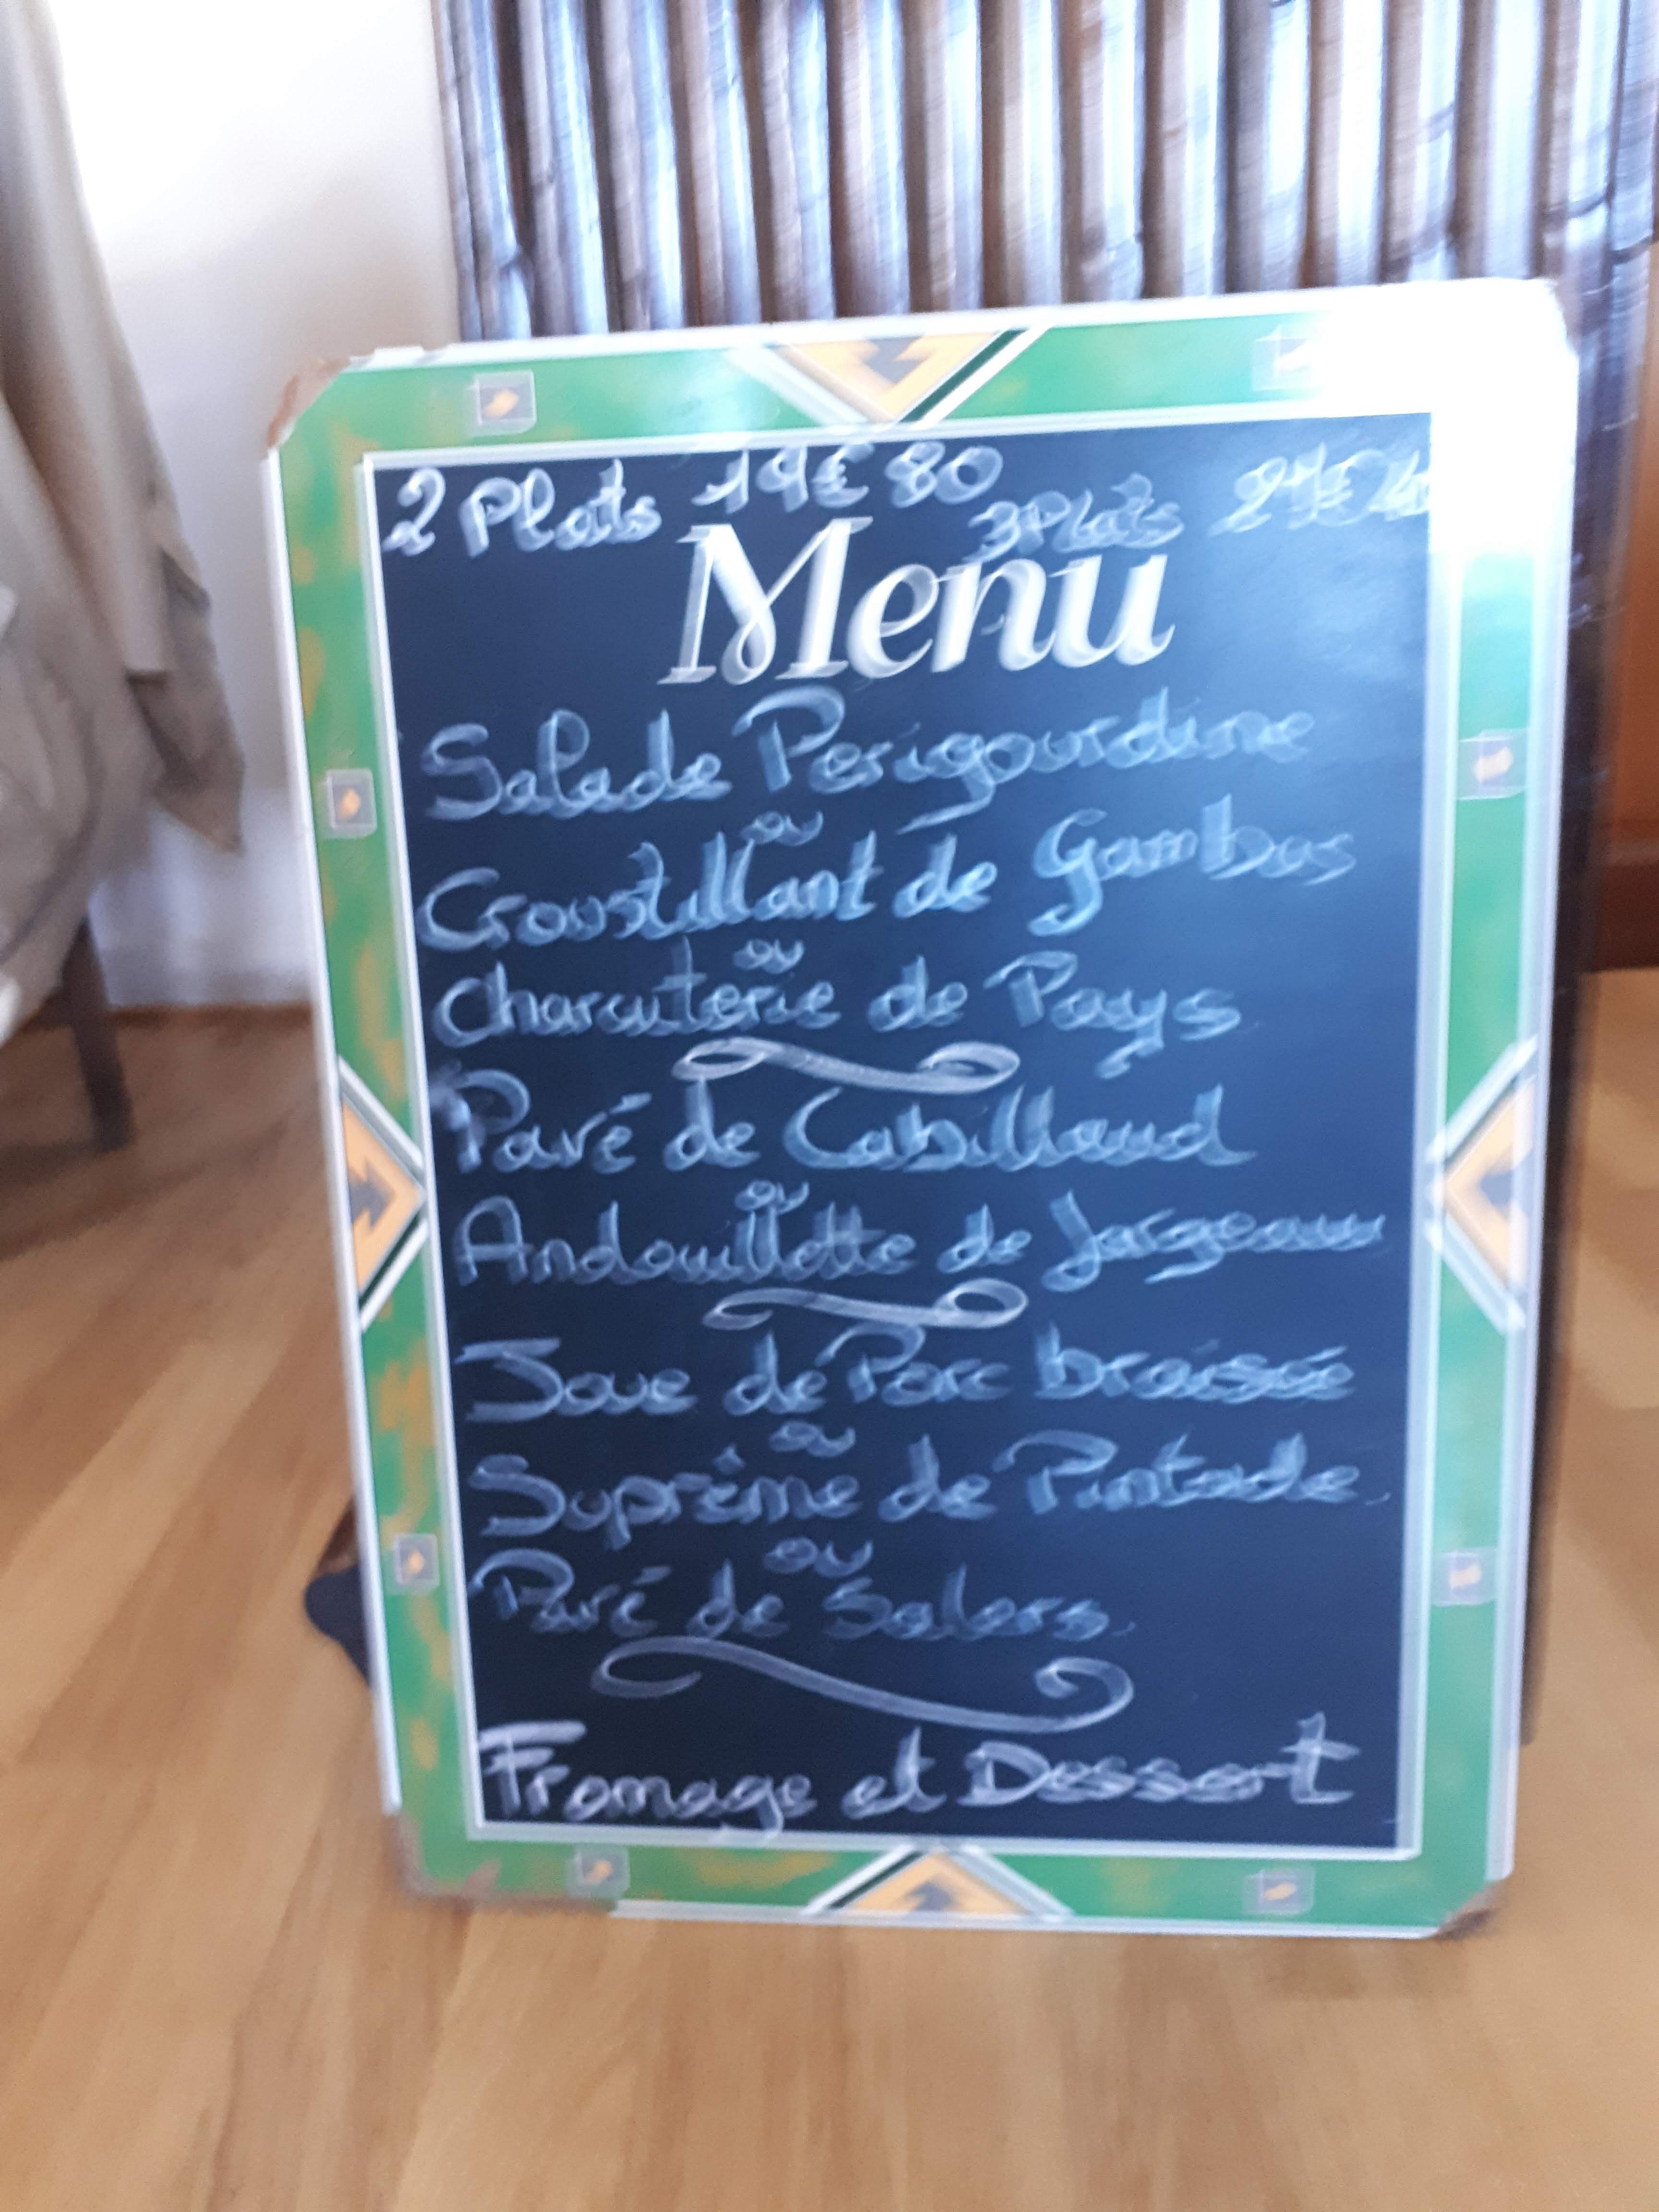 2 Plats 19€80
3 Plats
Menu
Salade Perigourdine
ou
Croustillant de Gambas
ou
Charcuterie de Pays
Pavé de Cabillaud
ou
Andouillette de Jargeau
Joue de Porc braisée
ou
Suprème de Pintade
ou
Pavé de Salers
Fromage et Dessert